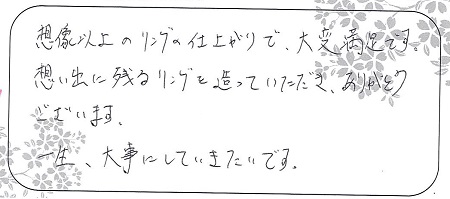 想像以上のリングの仕上がりで、大変満足です。
想い出に残るリングを造っていただき、ありがとう
ございます。
一生、大事にしていきたいです。